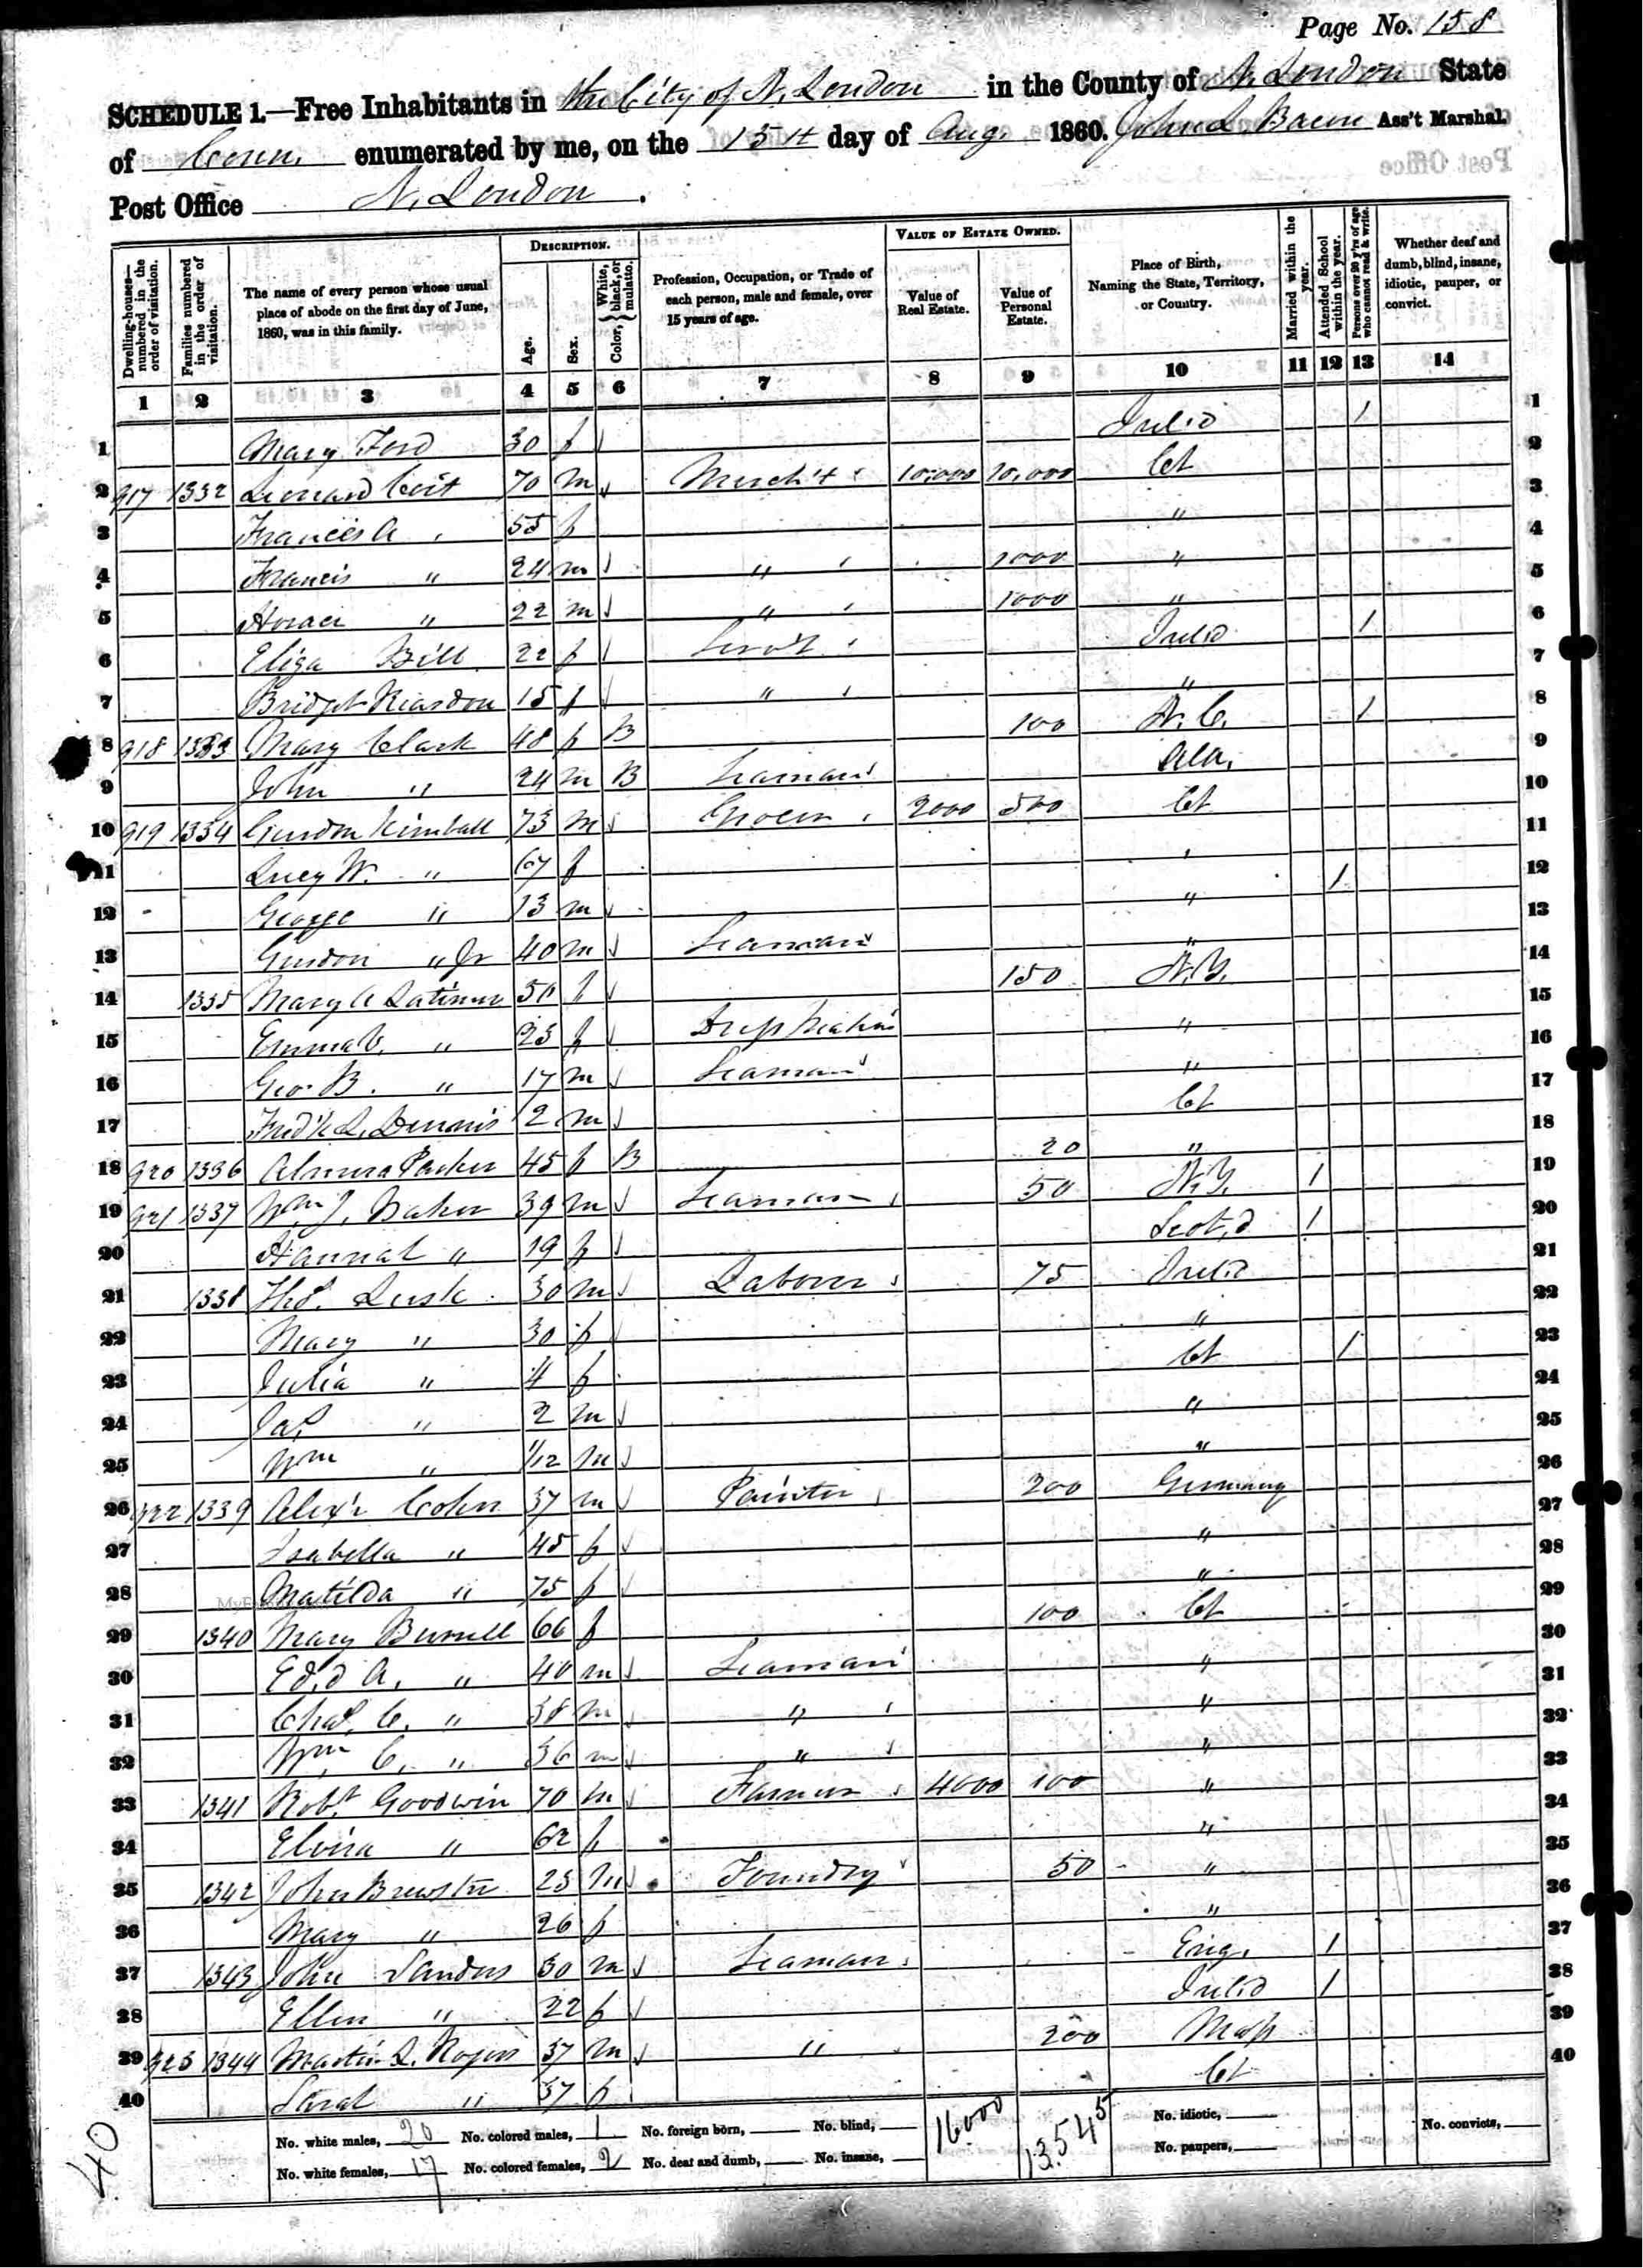 Page No. 158
SCHEDULE 1.—Free Inhabitants in the City of N. London in the County of N. London State
of Conn. enumerated by me, on the 15th day of Aug. 1860. John L Bacon Ass't Marshal.
Post Office N. London.
Dwelling-houses—numbered in the order of visitation.
Families numbered in the order of visitation.
The name of every person whose usual place of abode on the first day of June, 1860, was in this family.
DESCRIPTION.
Age.
Sex.
Color, { White, black, or mulatto.
Profession, Occupation, or Trade of each person, male and female, over 15 years of age.
VALUE OF ESTATE OWNED.
Value of Real Estate.
Value of Personal Estate.
Place of Birth, Naming the State, Territory, or Country.
Married within the year.
Attended School within the year.
Persons over 20 y'rs of age who cannot read & write.
Whether deaf and dumb, blind, insane, idiotic, pauper, or convict.
1 2 3 4 5 6 7 8 9 10 11 12 13 14
1 Mary Ford 30 f Irel'd / 1
2 917 1332 Leonard Coit 70 m Merch't 10,000 10,000 Ct 2
3 Frances A 55 f " 3
4 Francis " 24 m " 1000 " 4
5 Horace " 22 m " 1000 " 5
6 Eliza Bill 22 f Serv't Irel'd / 6
7 Bridget Reardon 15 f " " 7
8 918 1333 Mary Clark 48 f B 100 N.C. / 8
9 John " 24 m B Seaman Ala. 9
10 919 1334 Gurdon Kimball 73 m Grocer 2000 500 Ct 10
11 Lucy W. " 67 f " 11
12 George " 13 m " / 12
13 Gurdon " Jr 40 m Seaman " 13
14 1335 Mary A Latimer 50 f 150 N.Y. 14
15 Emma V. " 23 f Dress Maker " 15
16 Geo. B. " 17 m Seaman " 16
17 Fred'k L. Dennis 2 m Ct 17
18 920 1336 Almira Parker 45 f B 20 " 18
19 921 1337 Wm J. Baker 39 m Seaman 50 N.Y. / 19
20 Hannah " 19 f Scot'd / 20
21 1338 Thos. Lusk 30 m Laborer 75 Irel'd 21
22 Mary " 30 f " 22
23 Julia " 4 f Ct / 23
24 Jas. " 2 m " 24
25 Wm " 1/12 m " 25
26 922 1339 Alex'r Cohn 37 m Painter 200 Germany 26
27 Isabella " 45 f " 27
28 Matilda " 75 f " 28
29 1340 Mary Burnell 66 f 100 Ct 29
30 Ed'd A. " 40 m Seaman " 30
31 Chas. C. " 38 m " " 31
32 Wm. C. " 36 m " " 32
33 1341 Robt. Goodwin 70 m Farmer 4000 100 " 33
34 Elvira " 62 f " 34
35 1342 John Brewster 23 m Foundry 50 " 35
36 Mary " 26 f " 36
37 1343 John Sanders 30 m Seaman Eng. / 37
38 Ellen " 22 f Irel'd / 38
39 923 1344 Martin L. Rogers 37 m " 200 Mass 39
40 Sarah " 37 f Ct 40
No. white males, 20 No. colored males, 1 No. foreign born, No. blind, 16000 13.545 No. idiotic,
No. white females, 17 No. colored females, 2 No. deaf and dumb, No. insane, No. paupers, No. convicts,
40